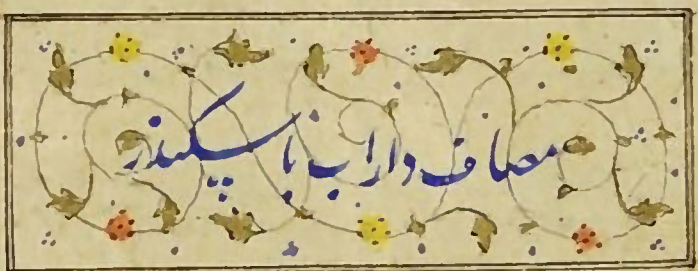 مصاف داراب با سکندر